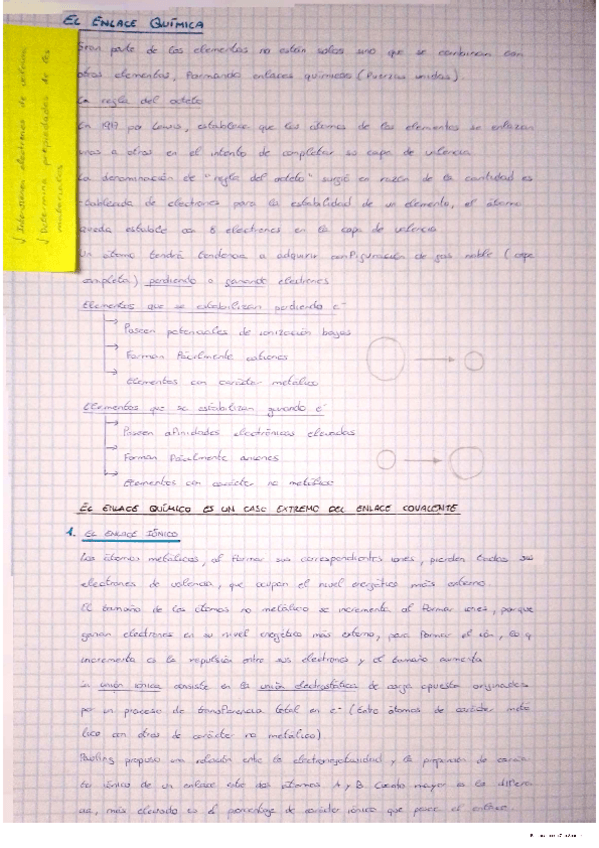 EL ENLACE QUÍMICA
↓ Intervienen electrones de valencia
↓ Determina propiedades de los
materiales
Gran parte de los elementos no están solos sino que se combinan con
otros elementos, formando enlaces químicos (fuerzas unidas).
La regla del octeto
En 1917 por Lewis, establece que los átomos de los elementos se enlazan
unos a otros en el intento de completar su capa de valencia
La denominación de "regla del octeto" surgió en razón de la cantidad es
tablecida de electrones para la estabilidad de un elemento, el átomo
queda estable con 8 electrones en la capa de valencia
Un átomo tendrá tendencia a adquirir configuración de gas noble (capa
completa) perdiendo o ganando electrones
Elementos que se estabilizan perdiendo e⁻
→ Poseen potenciales de ionización bajos
→ Forman fácilmente cationes
→ Elementos con carácter metálico
Elementos que se estabilizan ganando e⁻
→ Poseen afinidades electrónicas elevadas
→ Forman fácilmente aniones
→ Elementos con carácter no metálico
EL ENLACE QUÍMICO ES UN CASO EXTREMO DEL ENLACE COVALENTE
1. EL ENLACE IÓNICO
Los átomos metálicos, al formar sus correspondientes iones, pierden todos sus
electrones de valencia, que ocupan el nivel energético más externo.
El tamaño de los átomos no metálico se incrementa al formar iones, porque
ganan electrones en su nivel energético más externo, para formar el ión, lo q
incrementa es la repulsión entre sus electrones y el tamaño aumenta
La unión iónica consiste en la unión electrostática de carga opuesta originados
por un proceso de transferencia total en e⁻ (Entre átomos de carácter metá
lico con otros de carácter no metálico).
Pauling propuso una relación entre la electronegatividad y la proporción de carác
ter iónico de un enlace entre dos átomos A y B. Cuanto mayor es la diferen
cia, más elevado es el porcentaje de carácter iónico que posee el enlace.